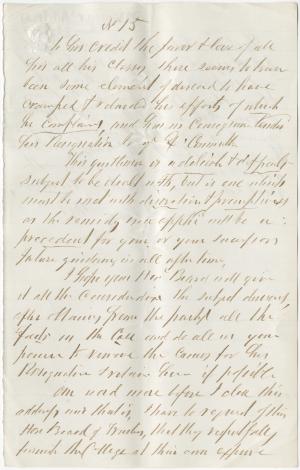 No 15
to his credit the favor & love of all
his all his Classes there seems to have
been some element of discord to have
cramped & retarded his efforts of which
he complains, and has in consequence tendered
his Resignation to
This gentlemen is a delicate & difficult
subject to be dealt with, but is one which
must be met with discretion & promptness
as the remedy now applied will be a
precedent for you or your successors
future guidance in all after time,
I hope your Hon. Board will give
it all the consideration the subject deserves,
after the party all the
facts in the Case and do all in your
power to remove the Causes for his
Resignation & retain him if possible
One word more before I close this
address and that is, I have to request of this
Hon Board of Trustees, that they respectfully
furnish the College at their own expense